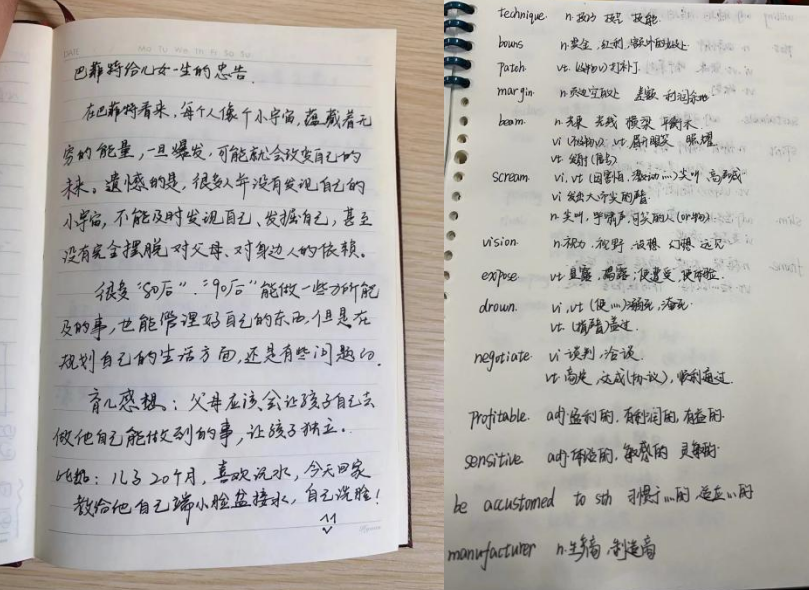 DATE Mo Tu We Th Fr Sa Su
巴菲特给儿女一生的忠告.
在巴菲特看来,每个人像个小宇宙,蕴藏着无
穷的能量,一旦爆发,可能就会改变自己的
未来。遗憾的是,很多人年没有发现自己的
小宇宙,不能及时发现自己、发掘自己,甚至
没有完全摆脱对父母、对身边人的依赖。
很多“80后”、“90后”能做一些力所能
及的事,也能管理好自己的东西,但是在
规划自己的生活方面,还是有些问题的.
育儿感想:父母应该会让孩子自己去
做他自己能做到的事,让孩子独立。
比如:儿子20个月,喜欢玩水,今天回家
教给他自己端小脸盆接水,自己洗脸!
technique. n. 技巧 技艺 技能.
bouns n. 奖金,红利,额外的
Patch vt. 打补丁.
margin. n. 页边空白处 差额 利润余地
beam. n. 光束 光线 横梁 平衡木.
vi vt. 眉开眼笑 照耀
vt. 发射
scream. vi, vt 尖叫,高声喊
vi 发出大而尖的声音
n. 尖叫,的人(or物).
vision. n. 视力,视野,设想 幻想 远见
expose vt. 显露,揭露,使遭受,使体验.
drown. vi, vt (使…)溺死,淹死.
vt. 盖过.
negotiate vi 谈判,洽谈.
vt. 商定,达成(协议),顺利通过.
Profitable. adj. 盈利的,有利润的,有益的.
sensitive adj. 体贴的,敏感的 灵敏的.
be accustomed to sth 习惯于…的 适应…的
manufacturer n. 生产商,制造商